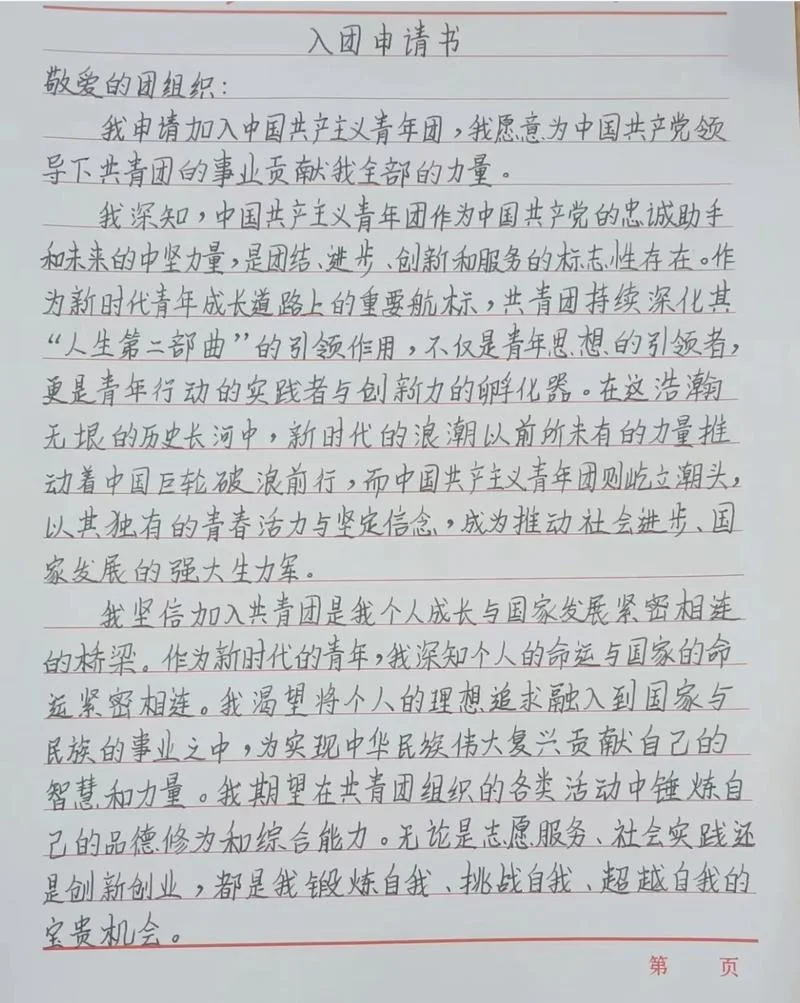 入团申请书
敬爱的团组织：
我申请加入中国共产主义青年团，我愿意为中国共产党领
导下共青团的事业贡献我全部的力量。
我深知，中国共产主义青年团作为中国共产党的忠诚助手
和未来的中坚力量，是团结、进步、创新和服务的标志性存在。作
为新时代青年成长道路上的重要航标，共青团持续深化其
“人生第二部曲”的引领作用，不仅是青年思想的引领者，
更是青年行动的实践者与创新力的孵化器。在这浩瀚
无垠的历史长河中，新时代的浪潮以前所未有的力量推
动着中国巨轮破浪前行，而中国共产主义青年团则屹立潮头，
以其独有的青春活力与坚定信念，成为推动社会进步、国
家发展的强大生力军。
我坚信加入共青团是我个人成长与国家发展紧密相连
的桥梁。作为新时代的青年，我深知个人的命运与国家的命
运紧密相连。我渴望将个人的理想追求融入到国家与
民族的事业之中，为实现中华民族伟大复兴贡献自己的
智慧和力量。我期望在共青团组织的各类活动中锤炼自
己的品德修为和综合能力。无论是志愿服务、社会实践还
是创新创业，都是我锻炼自我、挑战自我、超越自我的
宝贵机会。
第 页